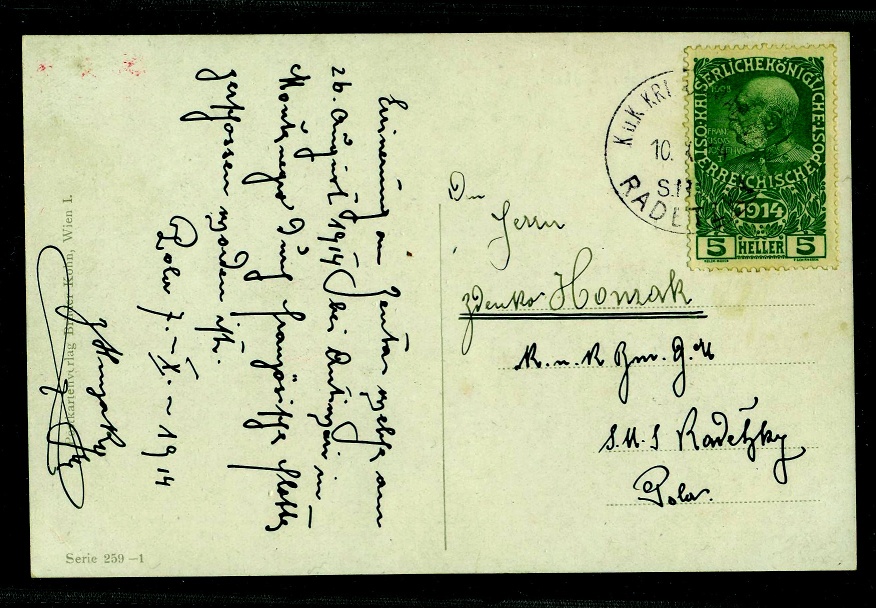 Erinnerung an Zentas welche am
26. August 1914 bei Antivari in
Montenegro durch französische Flotte
geschossen worden ist.
Pola 7.-X.-1914
Postkartenverlag Brüder Kohn, Wien I.
Serie 259-1
K.u.K. KRI
10. X
S.M.
RADETZKY
KAISERLICHEKÖNIGLICHE
ÖSTERREICHISCHEPOST
1908
FRAN
JOSEPH
1914
5 HELLER 5
Herrn
Zdenko Honzak
K. u. K
S.M.S Radetzky
Pola.